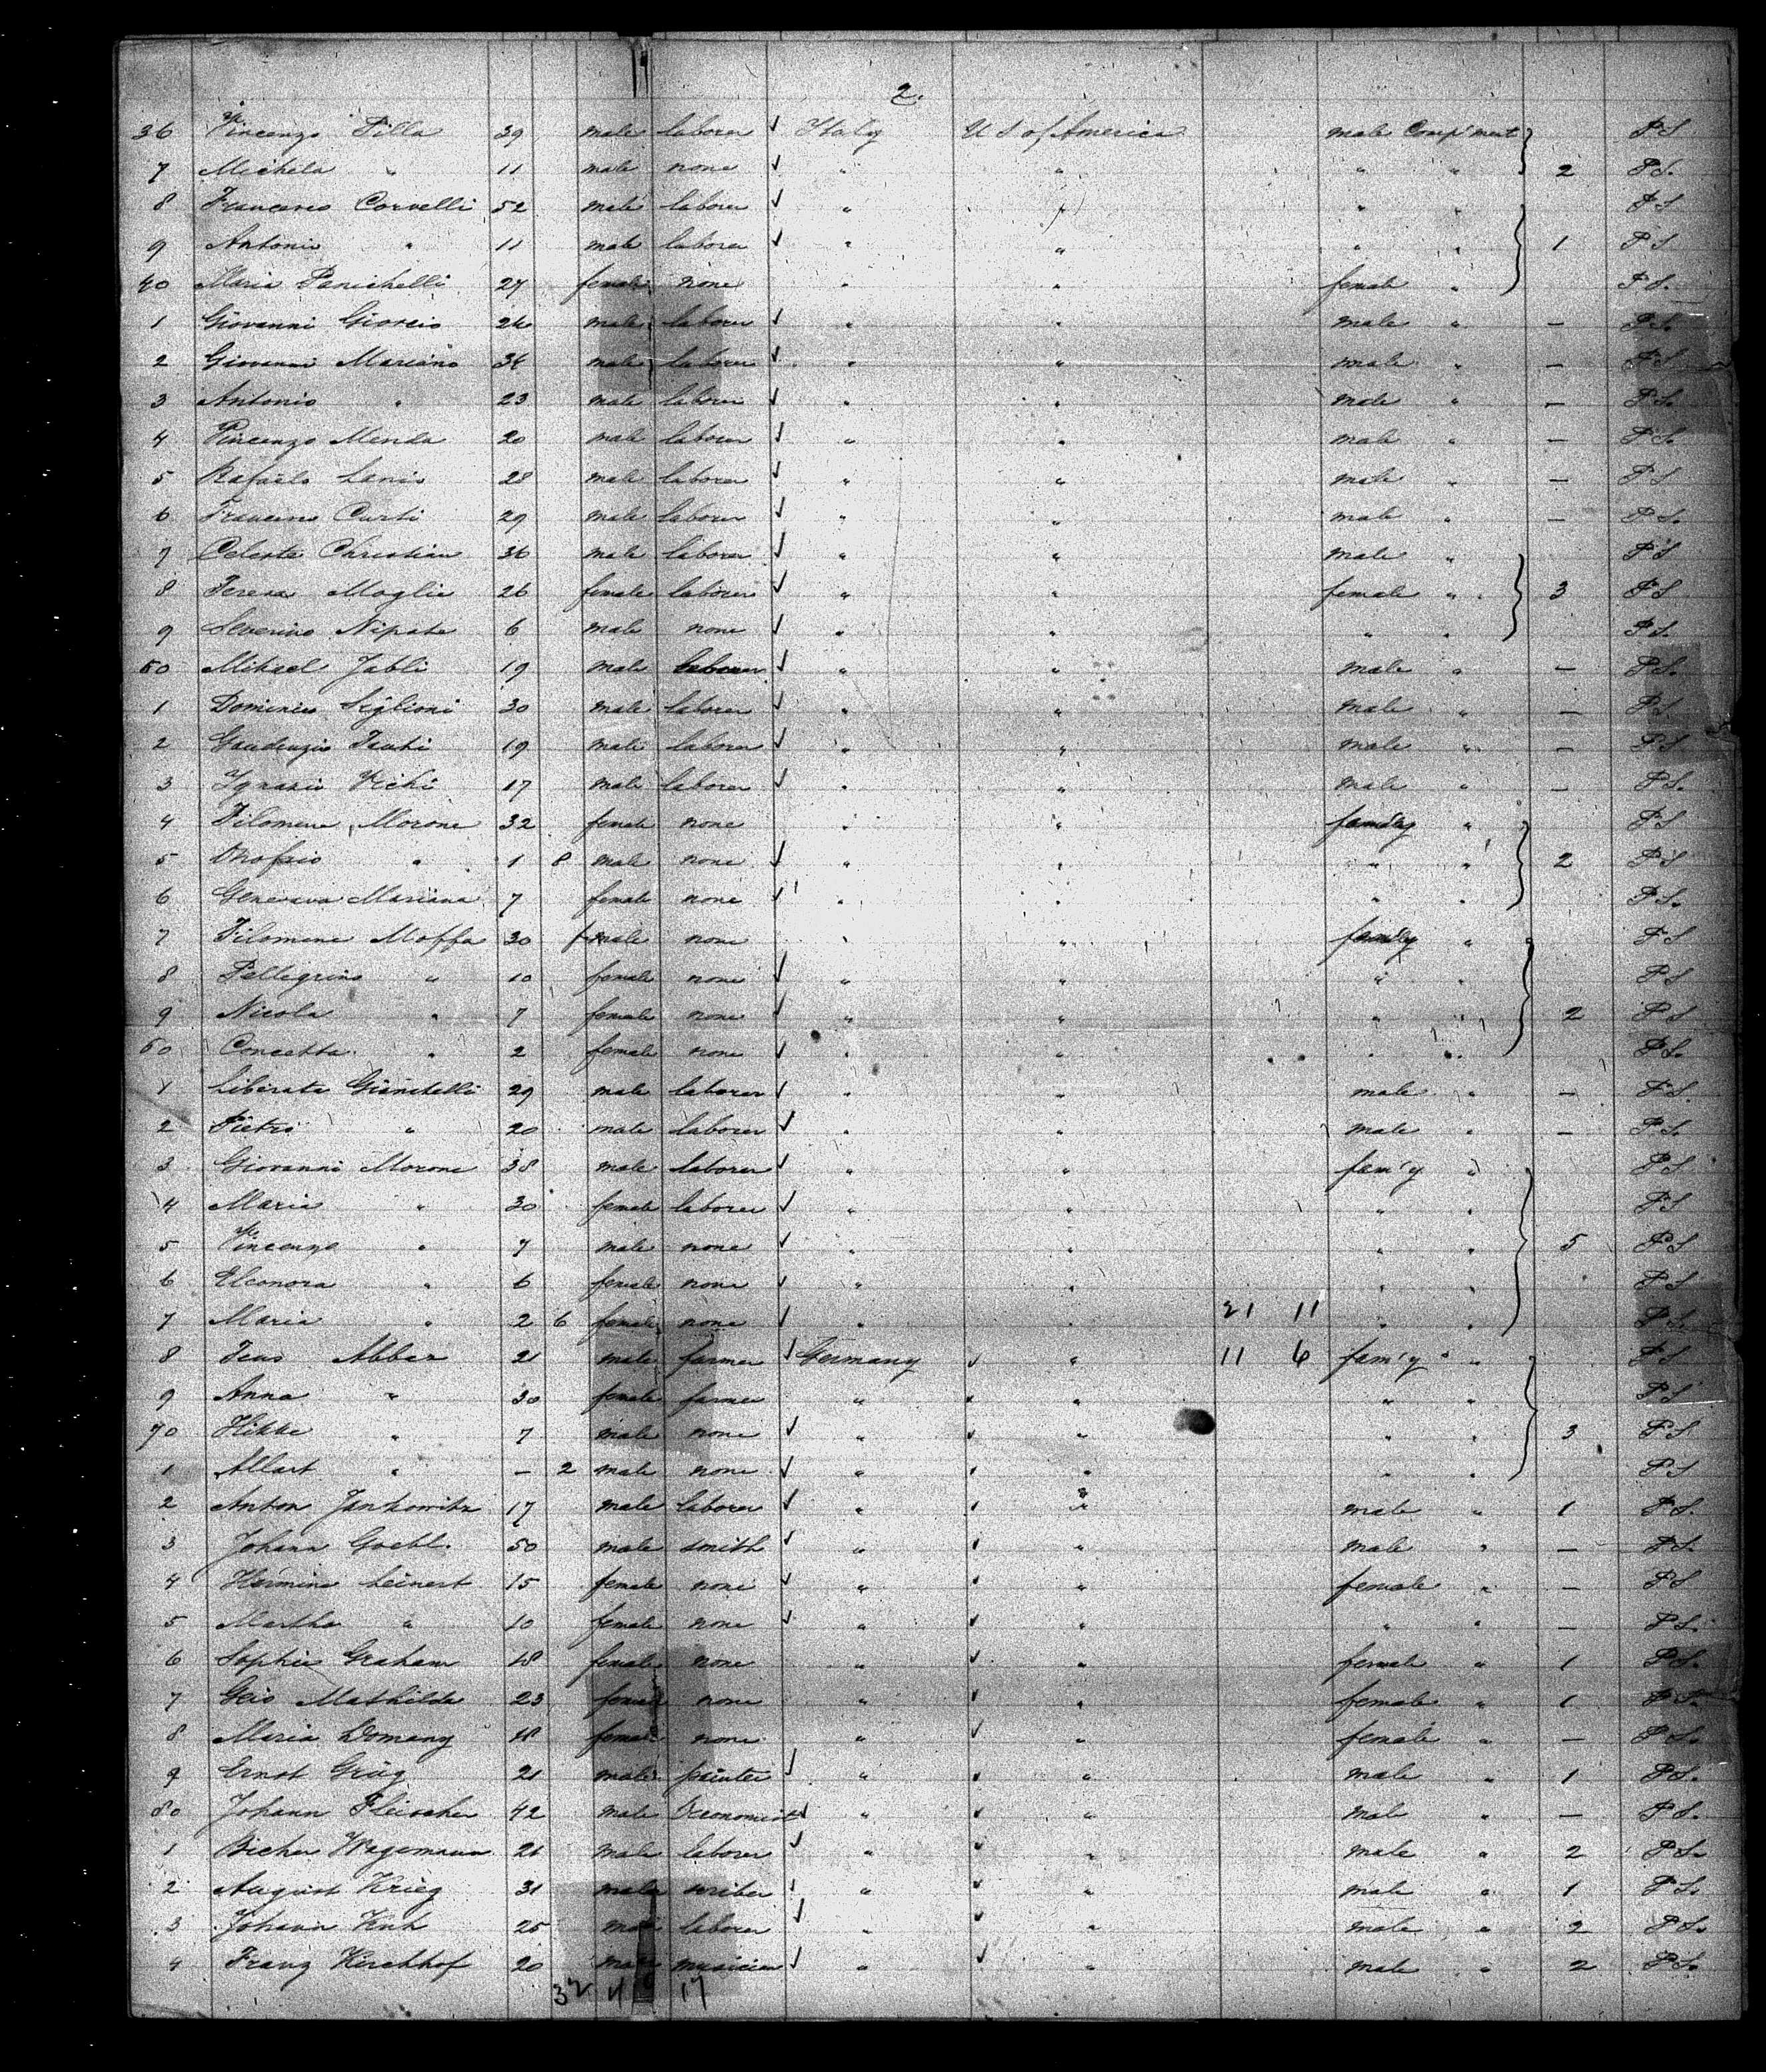 2.
36 Vincenzo Pilla 39 male laborer Italy U S of America male Comp'ment PS
7 Michela " 11 male none " " " " 2 PS.
8 Francesco Corvelli 52 male laborer " " " " PS
9 Antonio " 11 male laborer " " " " 1 PS
40 Maria Panichelli 27 female none " " female " PS.
1 Giovanni 26 male laborer " " male " — PS.
2 Giovanni Mariano 36 male laborer " " male " — PS
3 Antonio " 23 male laborer " " male " — PS.
4 Vincenzo Menda 20 male laborer " " male " — PS.
5 Rafaele 28 male laborer " " male " — PS
6 Francesco Curti 29 male laborer " " male " — PS.
7 Celeste Christian 36 male laborer " " male " PS
8 Teresa Moglie 26 female laborer " " female " 3 PS
9 Severino Nipote 6 male none " " " " PS.
50 Mikael Jabli 19 male laborer " " male " — PS.
1 Dominico Siglioni 30 male laborer " " male " — PS
2 Gaudenzio 19 male laborer " " male " — PS
3 Ignazio 17 male laborer " " male " — PS.
4 Filomena Morone 32 female none " " family " PS
5 Onofrio " 1 8 male none " " " " 2 PS
6 Mariana 7 female none " " " " PS.
7 Filomena Moffa 30 female none " " family " PS
8 Pellegrino " 10 female none " " " " PS
9 Nicola " 7 female none " " " " 2 PS
60 Concetta " 2 female none " " " " PS.
1 Liberato 29 male laborer " " male " — PS.
2 Pietro " 20 male laborer " " male " — PS.
3 Giovanni Morone 38 male laborer " " fam'y " PS
4 Maria " 30 female laborer " " " " PS
5 Vincenzo " 7 male none " " " " 5 PS
6 Eleonora " 6 female none " " " " PS
7 Maria " 2 6 female none " " 21 11 " " PS.
8 Abber 21 male farmer Germany " 11 6 fam'y " PS
9 Anna " 30 female farmer " " " " PS
70 Hikke " 7 male none " " " " 3 PS
1 Allert " — 2 male none " " " " PS
2 Anton Jankowitz 17 male laborer " " male " 1 PS.
3 Johann Goebl 50 male smith " " male " — PS.
4 Hermine Leinert 15 female none " " female " — PS
5 Martha " 10 female none " " " " — PS.
6 Sophie Graham 18 female none " " female " 1 PS.
7 Geis Mathilde 23 female none " " female " 1 PS.
8 Maria Domany 18 female none " " female " — PS.
9 Ernst 21 male painter " " male " 1 PS.
80 Johann Fleischer 42 male Oeconomist " " male " — PS.
1 Wagemann 21 male laborer " " male " 2 PS.
2 August Krieg 31 male " " male " 1 PS.
3 Johann 25 male laborer " " male " 2 PS.
4 Franz Kirchhof 20 male musician " " male " 2 PS.
32 11 17